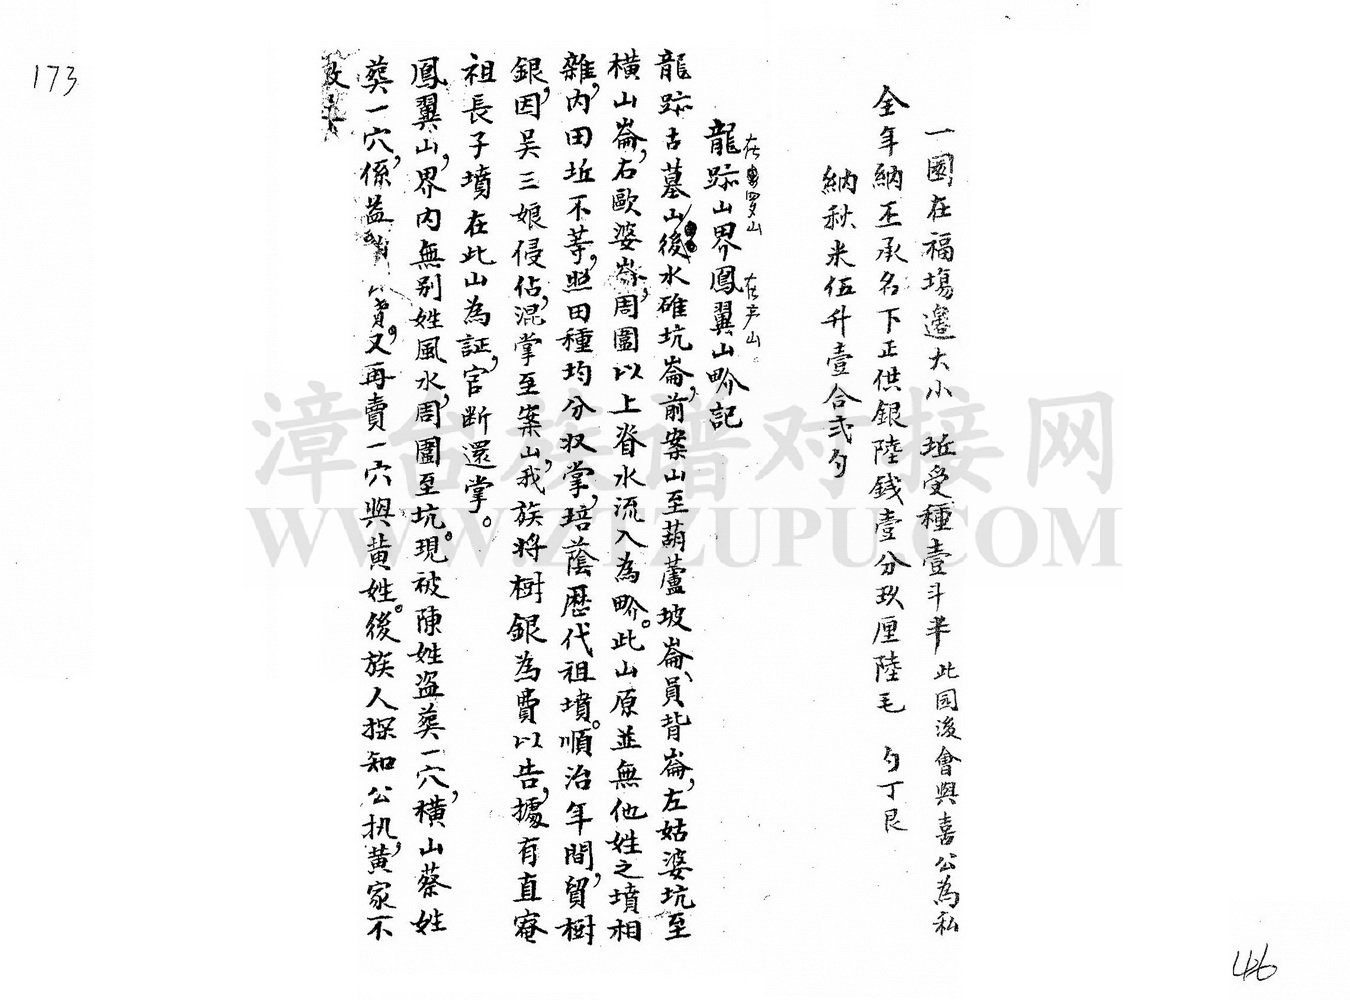 173
一園在福塲邉大小 坵受種壹斗半此园後會與喜公為私
全年納丕承名下正供銀陸錢壹分玖厘陸毛 勻丁艮
納秋米伍升壹合弍勺
龍跡山界鳳翼山界記
在罗山 在产山
龍跡古墓山後水碓坑崙,前案山至葫蘆坡崙、員背崙,左姑婆坑至
橫山崙,右歐婆崙,周圍以上脊水流入為界。此山原並無他姓之墳相
雜,內田坵不等,照田種均分収掌,培蔭歷代祖墳。順治年間,貿樹
銀,因吴三娘侵佔,混掌至案山,我族将樹銀為費以告,據有直庵
祖長子墳在此山為証,官断還掌。
鳳翼山,界內無别姓風水,周圍至坑。現被陳姓盗葬一穴,橫山蔡姓
葬一穴,係益 賣。又再賣一穴與黄姓。後族人探知公扒,黄家不
敢
漳台族谱对接网
WWW.ZTZUPU.COM
426